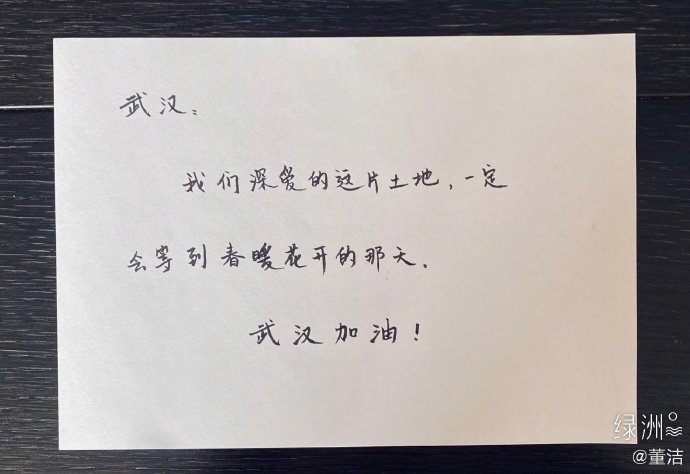 武汉：
我们深爱的这片土地，一定
会等到春暖花开的那天。
武汉加油！
绿洲
@董洁